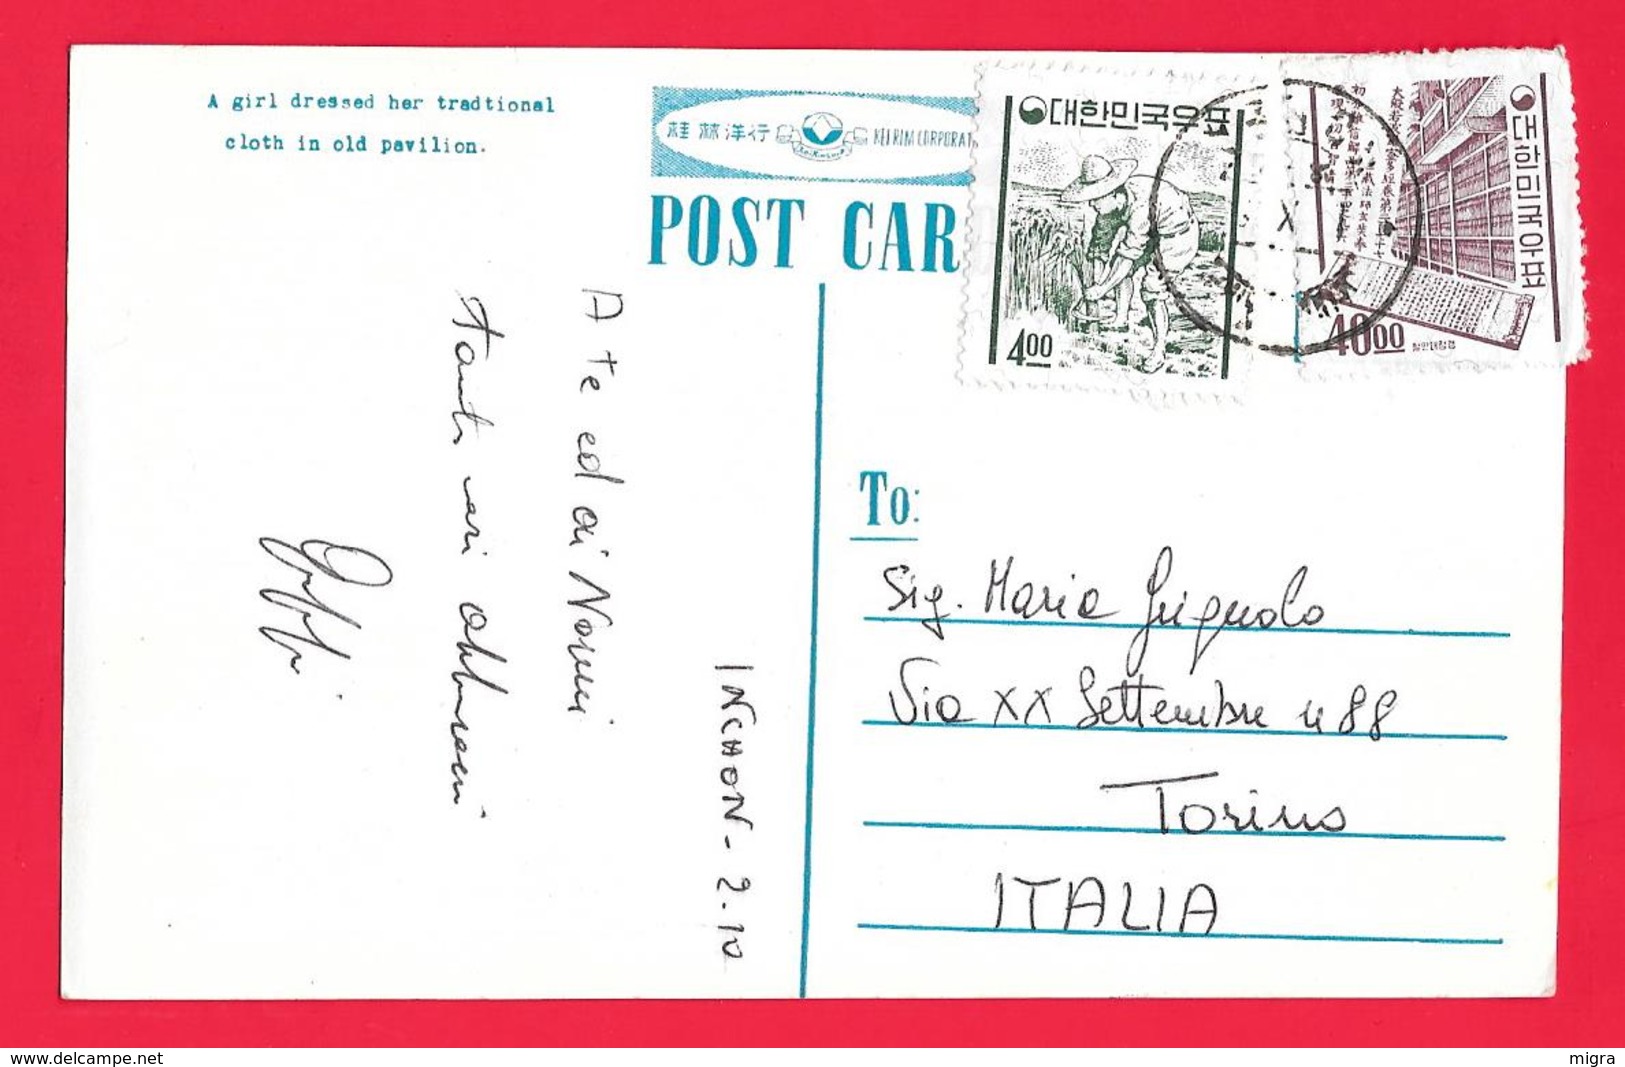 A girl dressed her tradtional
cloth in old pavilion.
桂林洋行
KEI RIM CORPORAT
POST CAR
대한민국우표
4.00
대한민국우표
40.00
팔만대장경
X
INCHON - 2.10
A te ed ai Nonni
tanti cari abbracci
To:
Sig. Maria Grignolo
Via XX Settembre n 88
Torino
ITALIA
www.delcampe.net
migra